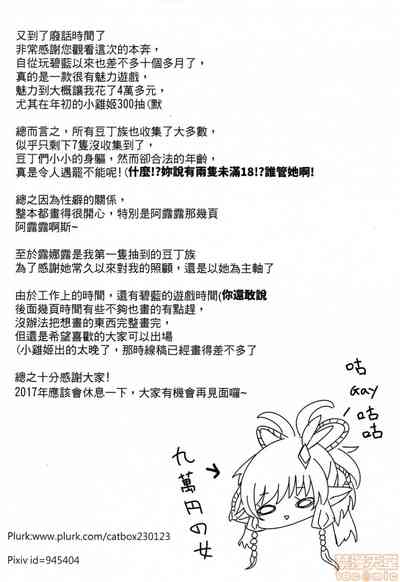 又到了廢話時間了
非常感謝您觀看這次的本奔，
自從玩碧藍以來也差不多十個多月了，
真的是一款很有魅力遊戲，
魅力到大概讓我花了4萬多元，
尤其在年初的小雞姬300抽(默
總而言之，所有豆丁族也收集了大多數，
似乎只剩下7隻沒收集到了，
豆丁們小小的身軀，然而卻合法的年齡，
真是令人遇罷不能呢!(什麼!?妳說有兩隻未滿18!?誰管她啊!
總之因為性癖的關係，
整本都畫得很開心，特別是阿露露那幾頁
阿露露啊斯~
至於露娜露是我第一隻抽到的豆丁族
為了感謝她常久以來對我的照顧，還是以她為主軸了
由於工作上的時間，還有碧藍的遊戲時間(你還敢說
後面幾頁時間有些不夠也畫的有點趕，
沒辦法把想畫的東西完整畫完，
但還是希望喜歡的大家可以出場
(小雞姬出的太晚了，那時線稿已經畫得差不多了
總之十分感謝大家!
2017年應該會休息一下，大家有機會再見面囉~
咕
Gay
咕
咕
九萬円の女
Plurk:www.plurk.com/catbox230123
Pixiv id=945404